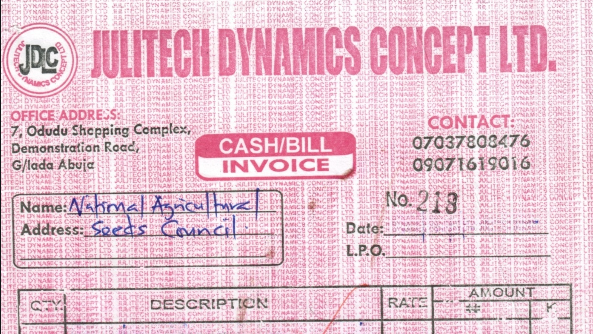 JDLC
JULITECH DYNAMICS CONCEPT LTD.
OFFICE ADDRESS:
7, Odudu Shopping Complex,
Demonstration Road,
G/lada Abuja
CASH/BILL
INVOICE
CONTACT:
07037808476
09071619016
Name: National Agricultural
Address: Seeds Council
No. 213
Date:
L.P.O.
QTY DESCRIPTION RATE AMOUNT
₦ K